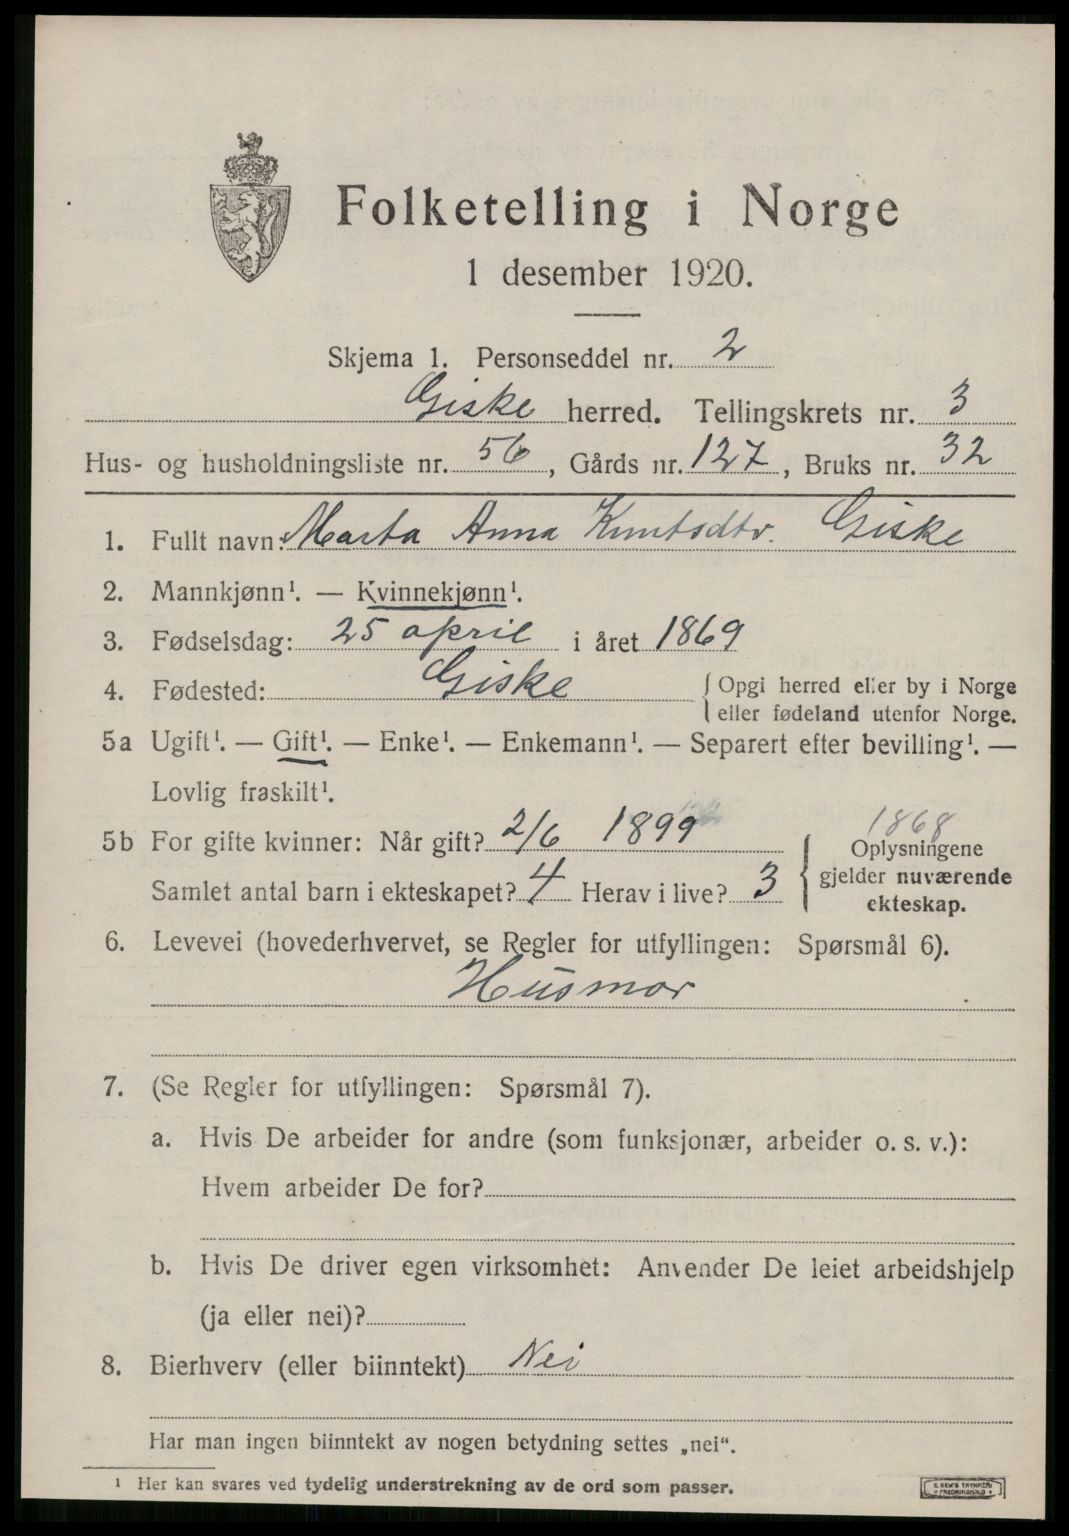 Folketelling i Norge
1 desember 1920.
Skjema 1. Personseddel nr. 2
Giske herred. Tellingskrets nr. 3
Hus- og husholdningsliste nr. 56, Gårds nr. 127, Bruks nr. 32
1. Fullt navn: Marta Anna Knutsdtr. Giske
2. Mannkjønn¹. — Kvinnekjønn¹.
3. Fødselsdag: 25 april i året 1869
4. Fødested: Giske { Opgi herred eller by i Norge
eller fødeland utenfor Norge.
5a Ugift¹. — Gift¹. — Enke¹. — Enkemann¹. — Separert efter bevilling¹. —
Lovlig fraskilt¹.
1868
5b For gifte kvinner: Når gift? 2/6 1899 Oplysningene
gjelder nuværende
Samlet antal barn i ekteskapet? 4 Herav i live? 3 ekteskap.
6. Levevei (hovederhvervet, se Regler for utfyllingen: Spørsmål 6).
Husmor
7. (Se Regler for utfyllingen: Spørsmål 7).
a. Hvis De arbeider for andre (som funksjonær, arbeider o. s. v.):
Hvem arbeider De for?
b. Hvis De driver egen virksomhet: Anvender De leiet arbeidshjelp
(ja eller nei)?
8. Bierhverv (eller biinntekt) Nei
Har man ingen biinntekt av nogen betydning settes „nei“.
¹ Her kan svares ved tydelig understrekning av de ord som passer.